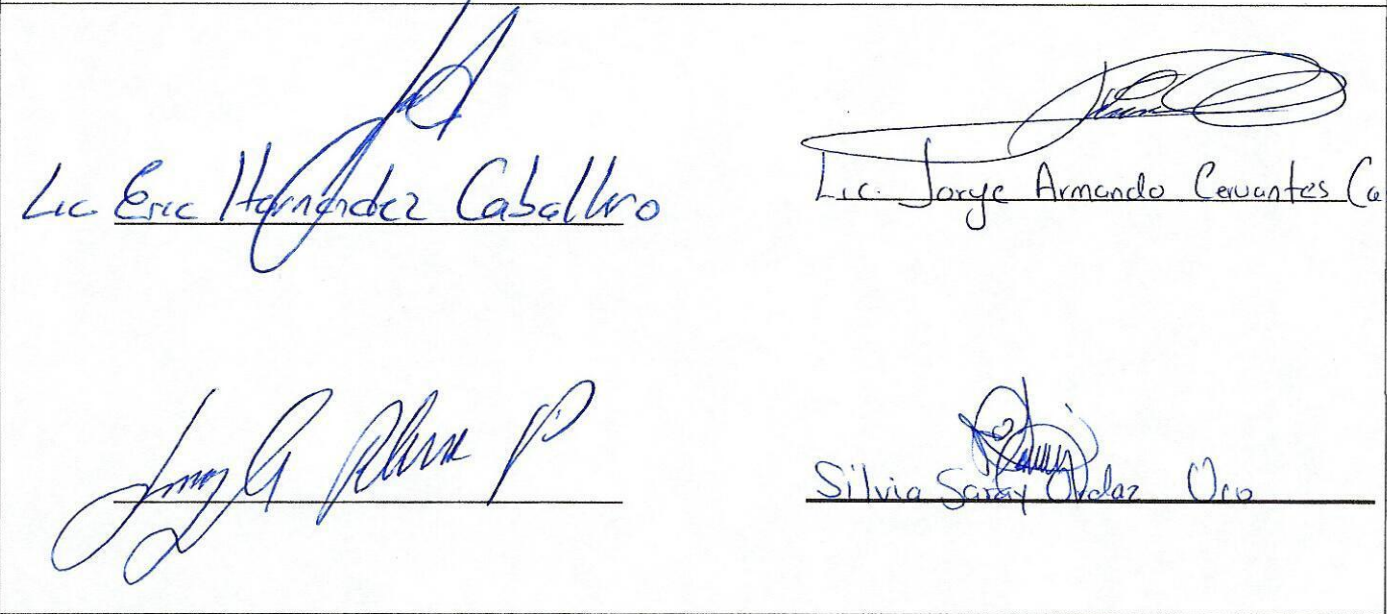 Lic Eric Hernández Caballero
Lic. Jorge Armando Cervantes Ca
Silvia Saray Ordaz Oro